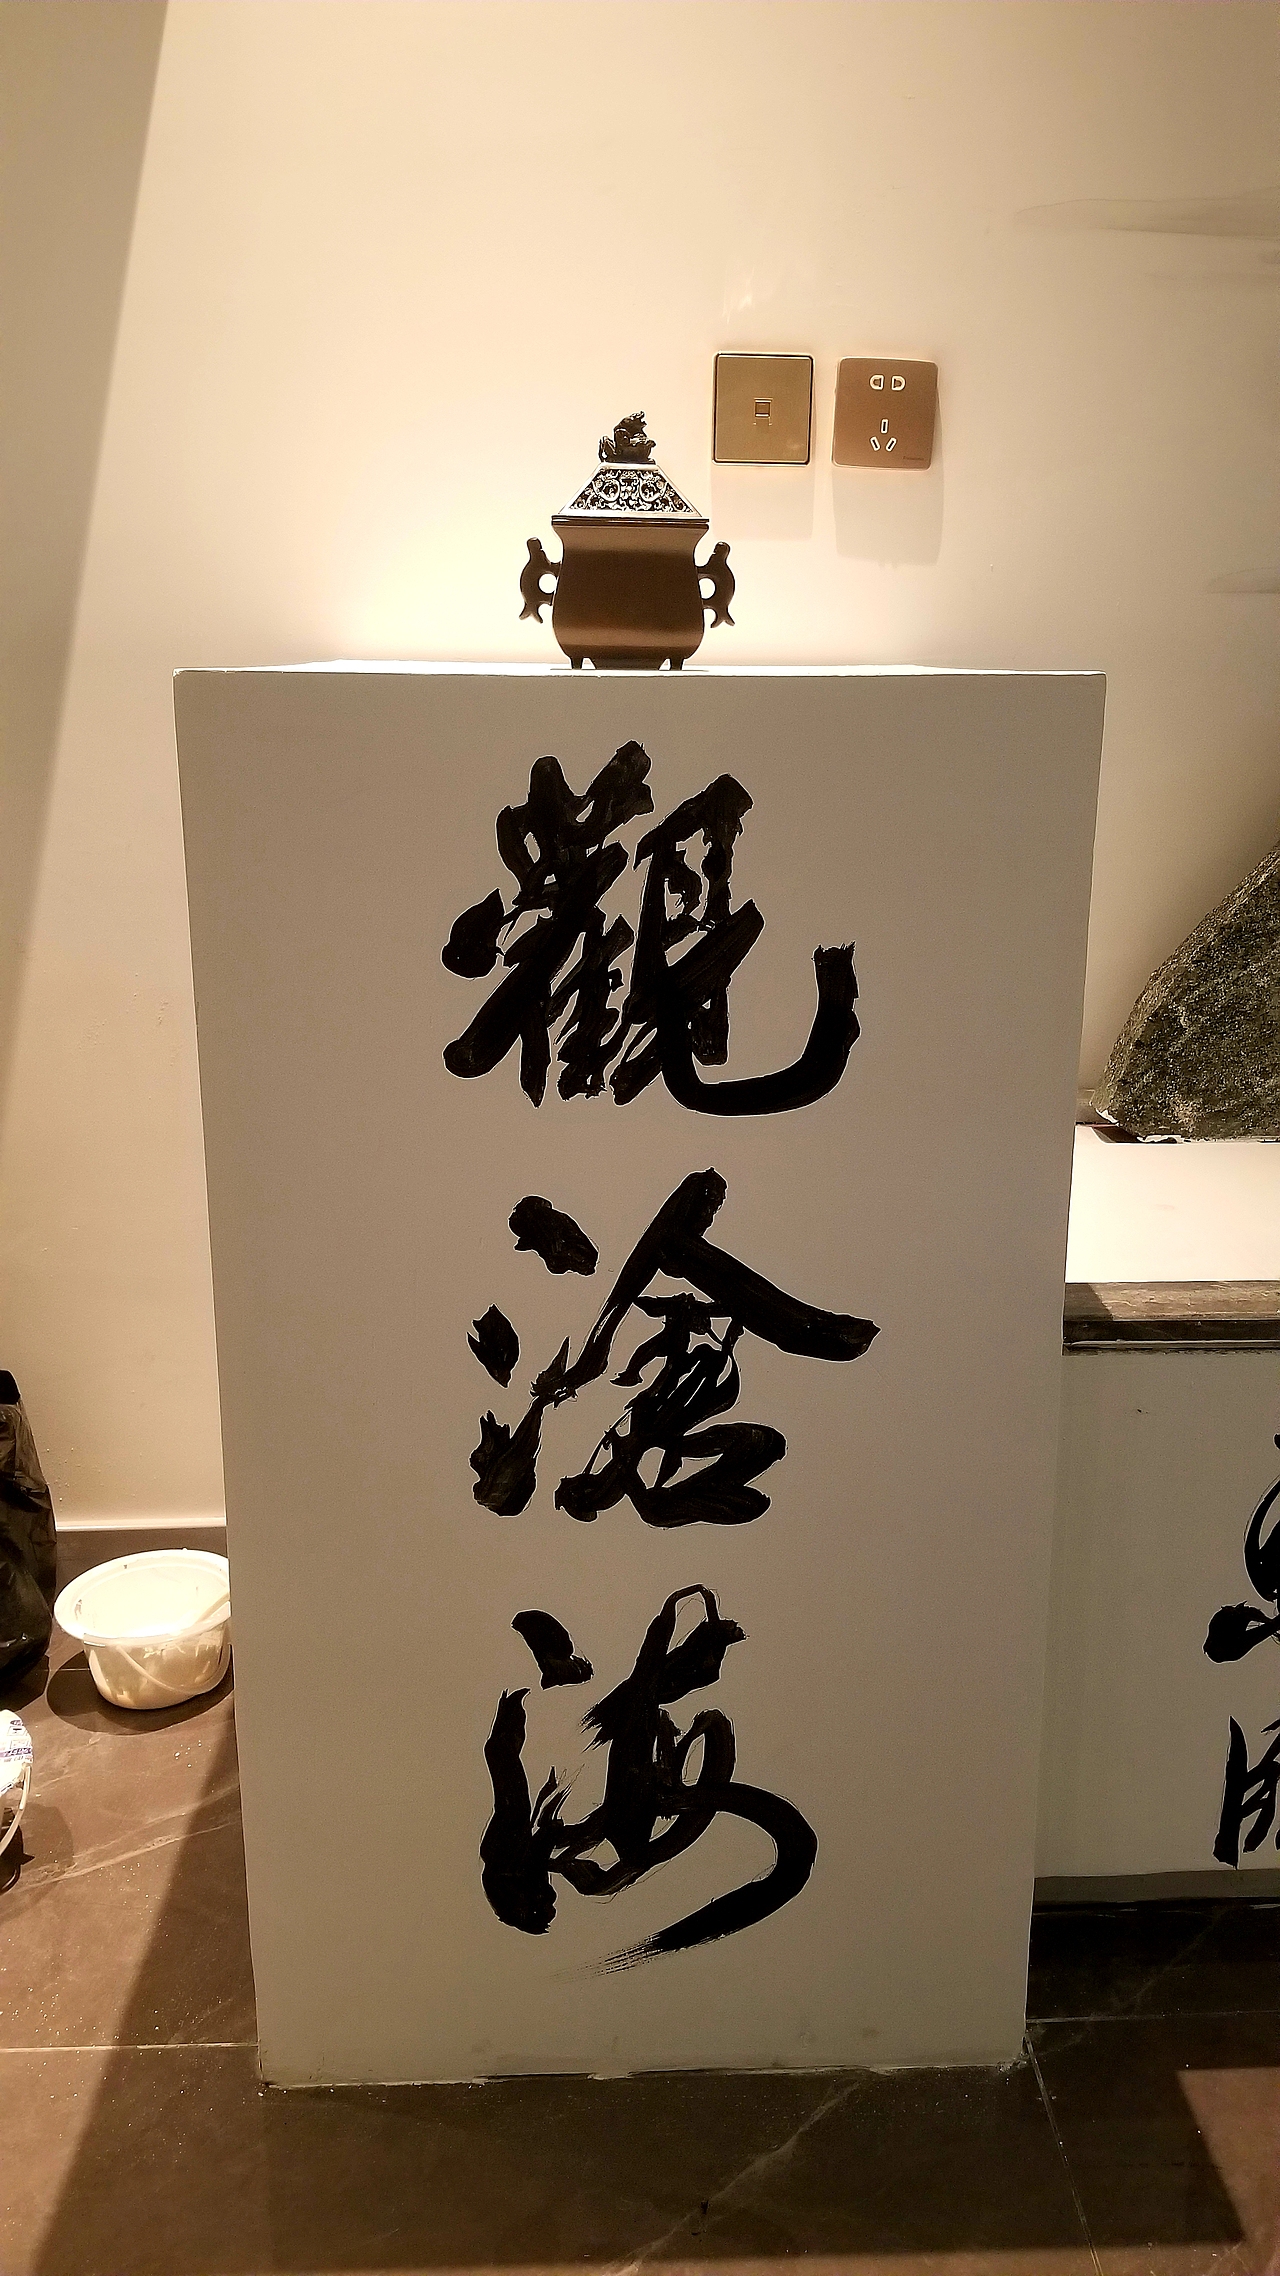 觀滄海